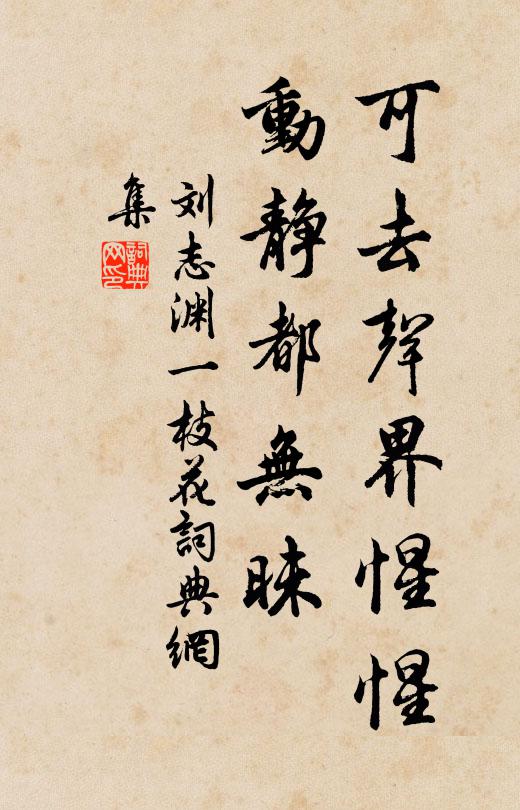 可去聲界惺惺
動静都無昧
刘志渊一枝花詞典網
集
詞典网印